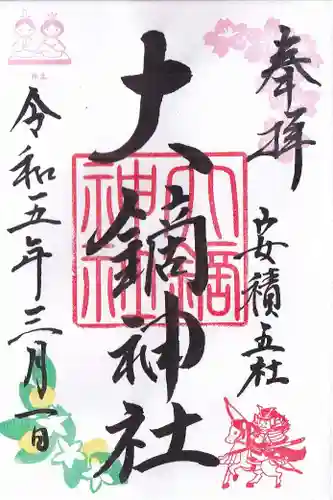 奉拝
安積五社
大鏑神社
大鏑神社
令和五年三月一日